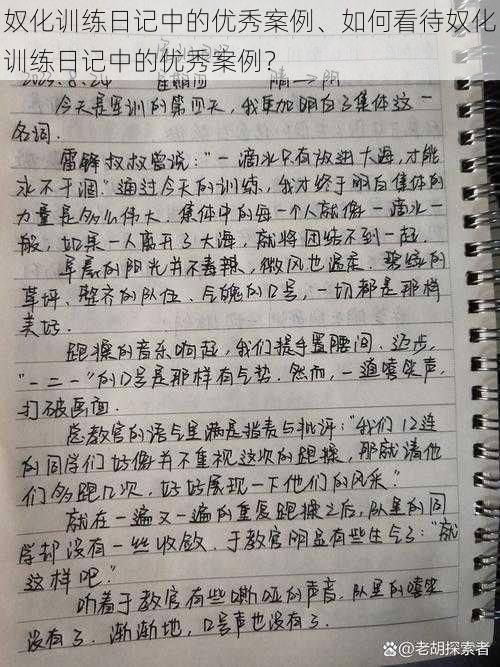 奴化训练日记中的优秀案例、如何看待奴化
训练日记中的优秀案例？
2023.8.24 星期四 晴→阴
今天是军训的第四天，我更加明白了集体这一
名词．
雷锋叔叔曾说："一滴水只有放进大海，才能
永不干涸."通过今天的训练，我才终于明白集体的
力量是多么伟大．集体中的每一个人就像一滴水一
般，如果一人离开了大海，就将团结不到一起．
早晨的阳光并不毒辣，微风也温柔．碧绿的
草坪、整齐的队伍、气魄的口号，一切都是那样
美好．
跑操的音乐响起，我们提手置腰间、迈步，
"一二一"的口号是那样有气势．然而，一道嘻笑声，
打破画面．
总教官的语气里满是指责与批评："我们12连
的同学们好像并不重视这次的跑操，那就请他
们多跑几次，好好展现一下他们的风采."
就在一遍又一遍的重复跑操之后，队里的同
学却没有一丝收敛．于教官明显有些生气了："就
这样吧."
听着于教官有些嘶哑的声音，队里的嘻笑
没有了．渐渐地，口号声也没有了．
老胡探索者